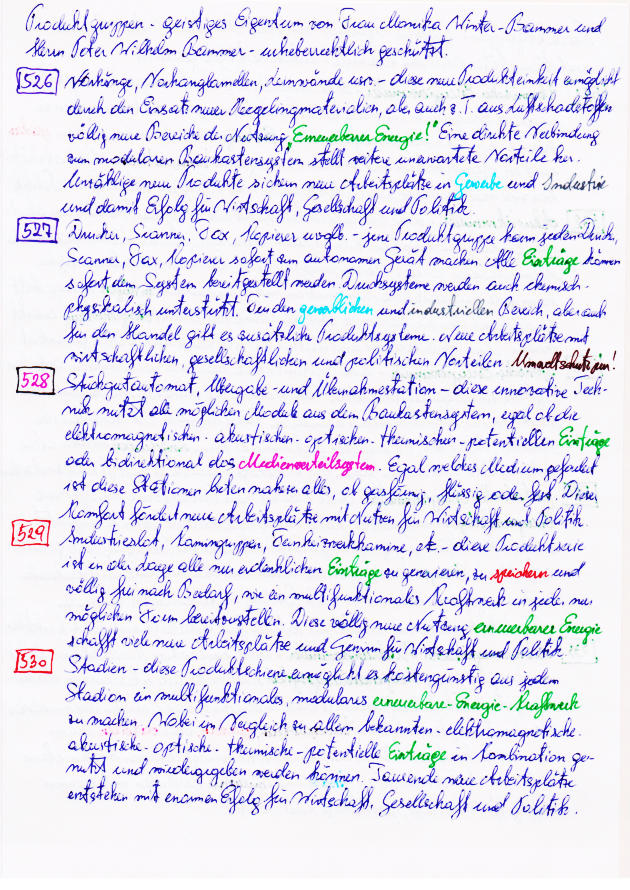 Produktgruppen - geistiges Eigentum von Frau Monika Winter-Bammer und
Herrn Peter Wilhelm Bammer - urheberrechtlich geschützt.
526 Vorhänge, Vorhanglamellen, Leinwände usw. - diese neue Produkteinheit ermöglicht
durch den Einsatz neuer Regelingmaterialien, aber auch z.T. aus Luftschadstoffen
völlig neue Bereiche der Nutzung "Erneuerbarer Energie!" Eine direkte Verbindung
zum modularen Baukastensystem stellt weitere unerwartete Vorteile her.
Unzählige neue Produkte sichern neue Arbeitsplätze in Gewerbe und Industrie
und damit Erfolg für Wirtschaft, Gesellschaft und Politik.
527 Drucker, Scanner, Fax, Kopierer usglb. - jene Produktgruppe kann jeden Druck,
Scanner, Fax, Kopierer sofort zum autonomen Gerät machen. Alle Einträge können
sofort dem System bereitgestellt werden. Drucksysteme werden auch chemisch-
physikalisch unterstützt. Für den gewerblichen und industriellen Bereich, aber auch
für den Handel gibt es zusätzliche Produktsysteme. Neue Arbeitsplätze mit
wirtschaftlichen, gesellschaftlichen und politischen Vorteilen. Umweltschutz pur!
528 Stückgutautomat, Übergabe- und Übernahmestation - diese innovative Tech-
nik nutzt alle möglichen Module aus dem Baukastensystem, egal ob die
elektromagnetischen - akustischen - optischen - thermischen - potentiellen Einträge
oder bidirektional das Medienverteilsystem. Egal welches Medium gefordert
ist diese Stationen bieten nahezu alles, ob gasförmig, flüssig oder fest. Dieser
Komfort fördert neue Arbeitsplätze mit Nutzen für Wirtschaft und Politik
529 Industrieslot, Kamingruppen, Fernheizwerkkamine, etc. - diese Produktserie
ist in der Lage alle nur erdenklichen Einträge zu generieren, zu speichern und
völlig frei nach Bedarf, wie ein multifunktionales Kraftwerk in jeder nur
möglichen Form bereitzustellen. Diese völlig neue Nutzung erneuerbarer Energie
schafft viele neue Arbeitsplätze und Gewinn für Wirtschaft und Politik
530 Stadien - diese Produktschiene ermöglicht es kostengünstig aus jedem
Stadion ein multifunktionales, modulares erneuerbare-Energie-Kraftwerk
zu machen. Wobei im Vergleich zu allem bekannten - elektromagnetische -
akustische - optische - thermische - potentielle Einträge in Kombination ge-
nutzt und wiedergegeben werden können. Tausende neue Arbeitsplätze
entstehen mit enormen Erfolg für Wirtschaft, Gesellschaft und Politik.